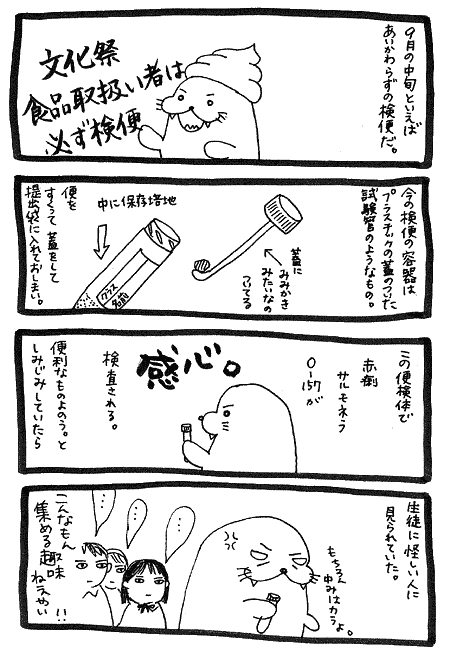 9月の中旬といえば
あいかわらずの検便だ。
文化祭
食品取扱い者は
必ず検便
今の検便の容器は
プラスチックの蓋のついた
試験管のようなもの。
蓋に
みみかき
みたいなの
ついてる
中に保存培地
クラス
名前
便を
すくって蓋をして
提出袋に入れておしまい。
この便検体で
赤痢
サルモネラ
O-157が
検査される。
感心。
便利なものよのう。と
しみじみしていたら
生徒に怪しい人に
見られていた。
もちろん
中みはカラよ。
…
…
…
こんなもん
集める趣味
ねえやい!!